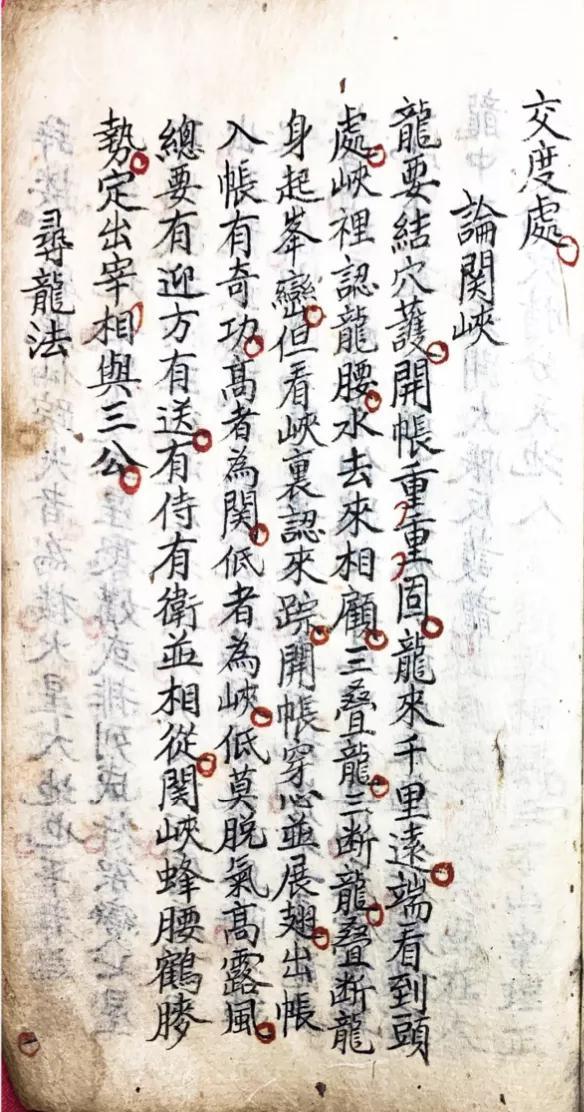 交度處
論関峽
龍要結穴護開帳重重固龍來千里遠端看到頭
處峽裡認龍腰水去來相顧三叠龍三断龍叠断龍
身起峯巒但看峽裏認來踪開帳穿心並展翅出帳
入帳有奇功高者為関低者為峽低莫脫氣高露風
總要有迎方有送有侍有衛並相從関峽蜂腰鶴膝
勢定出宰相與三公
尋龍法